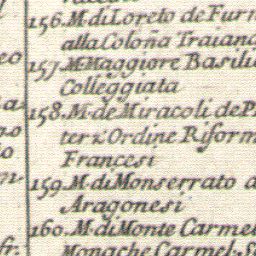 156. M. di Loreto de Furn
alla Coloña Traiana
157. M. Maggiore Basili
Colleggiata
158. M. de Miracoli de P
ter z.º Ordine Riform
Francesi
159. M. di Monserrato a
Aragonesi
160. M. di Monte Carmel
Monache Carmel. S